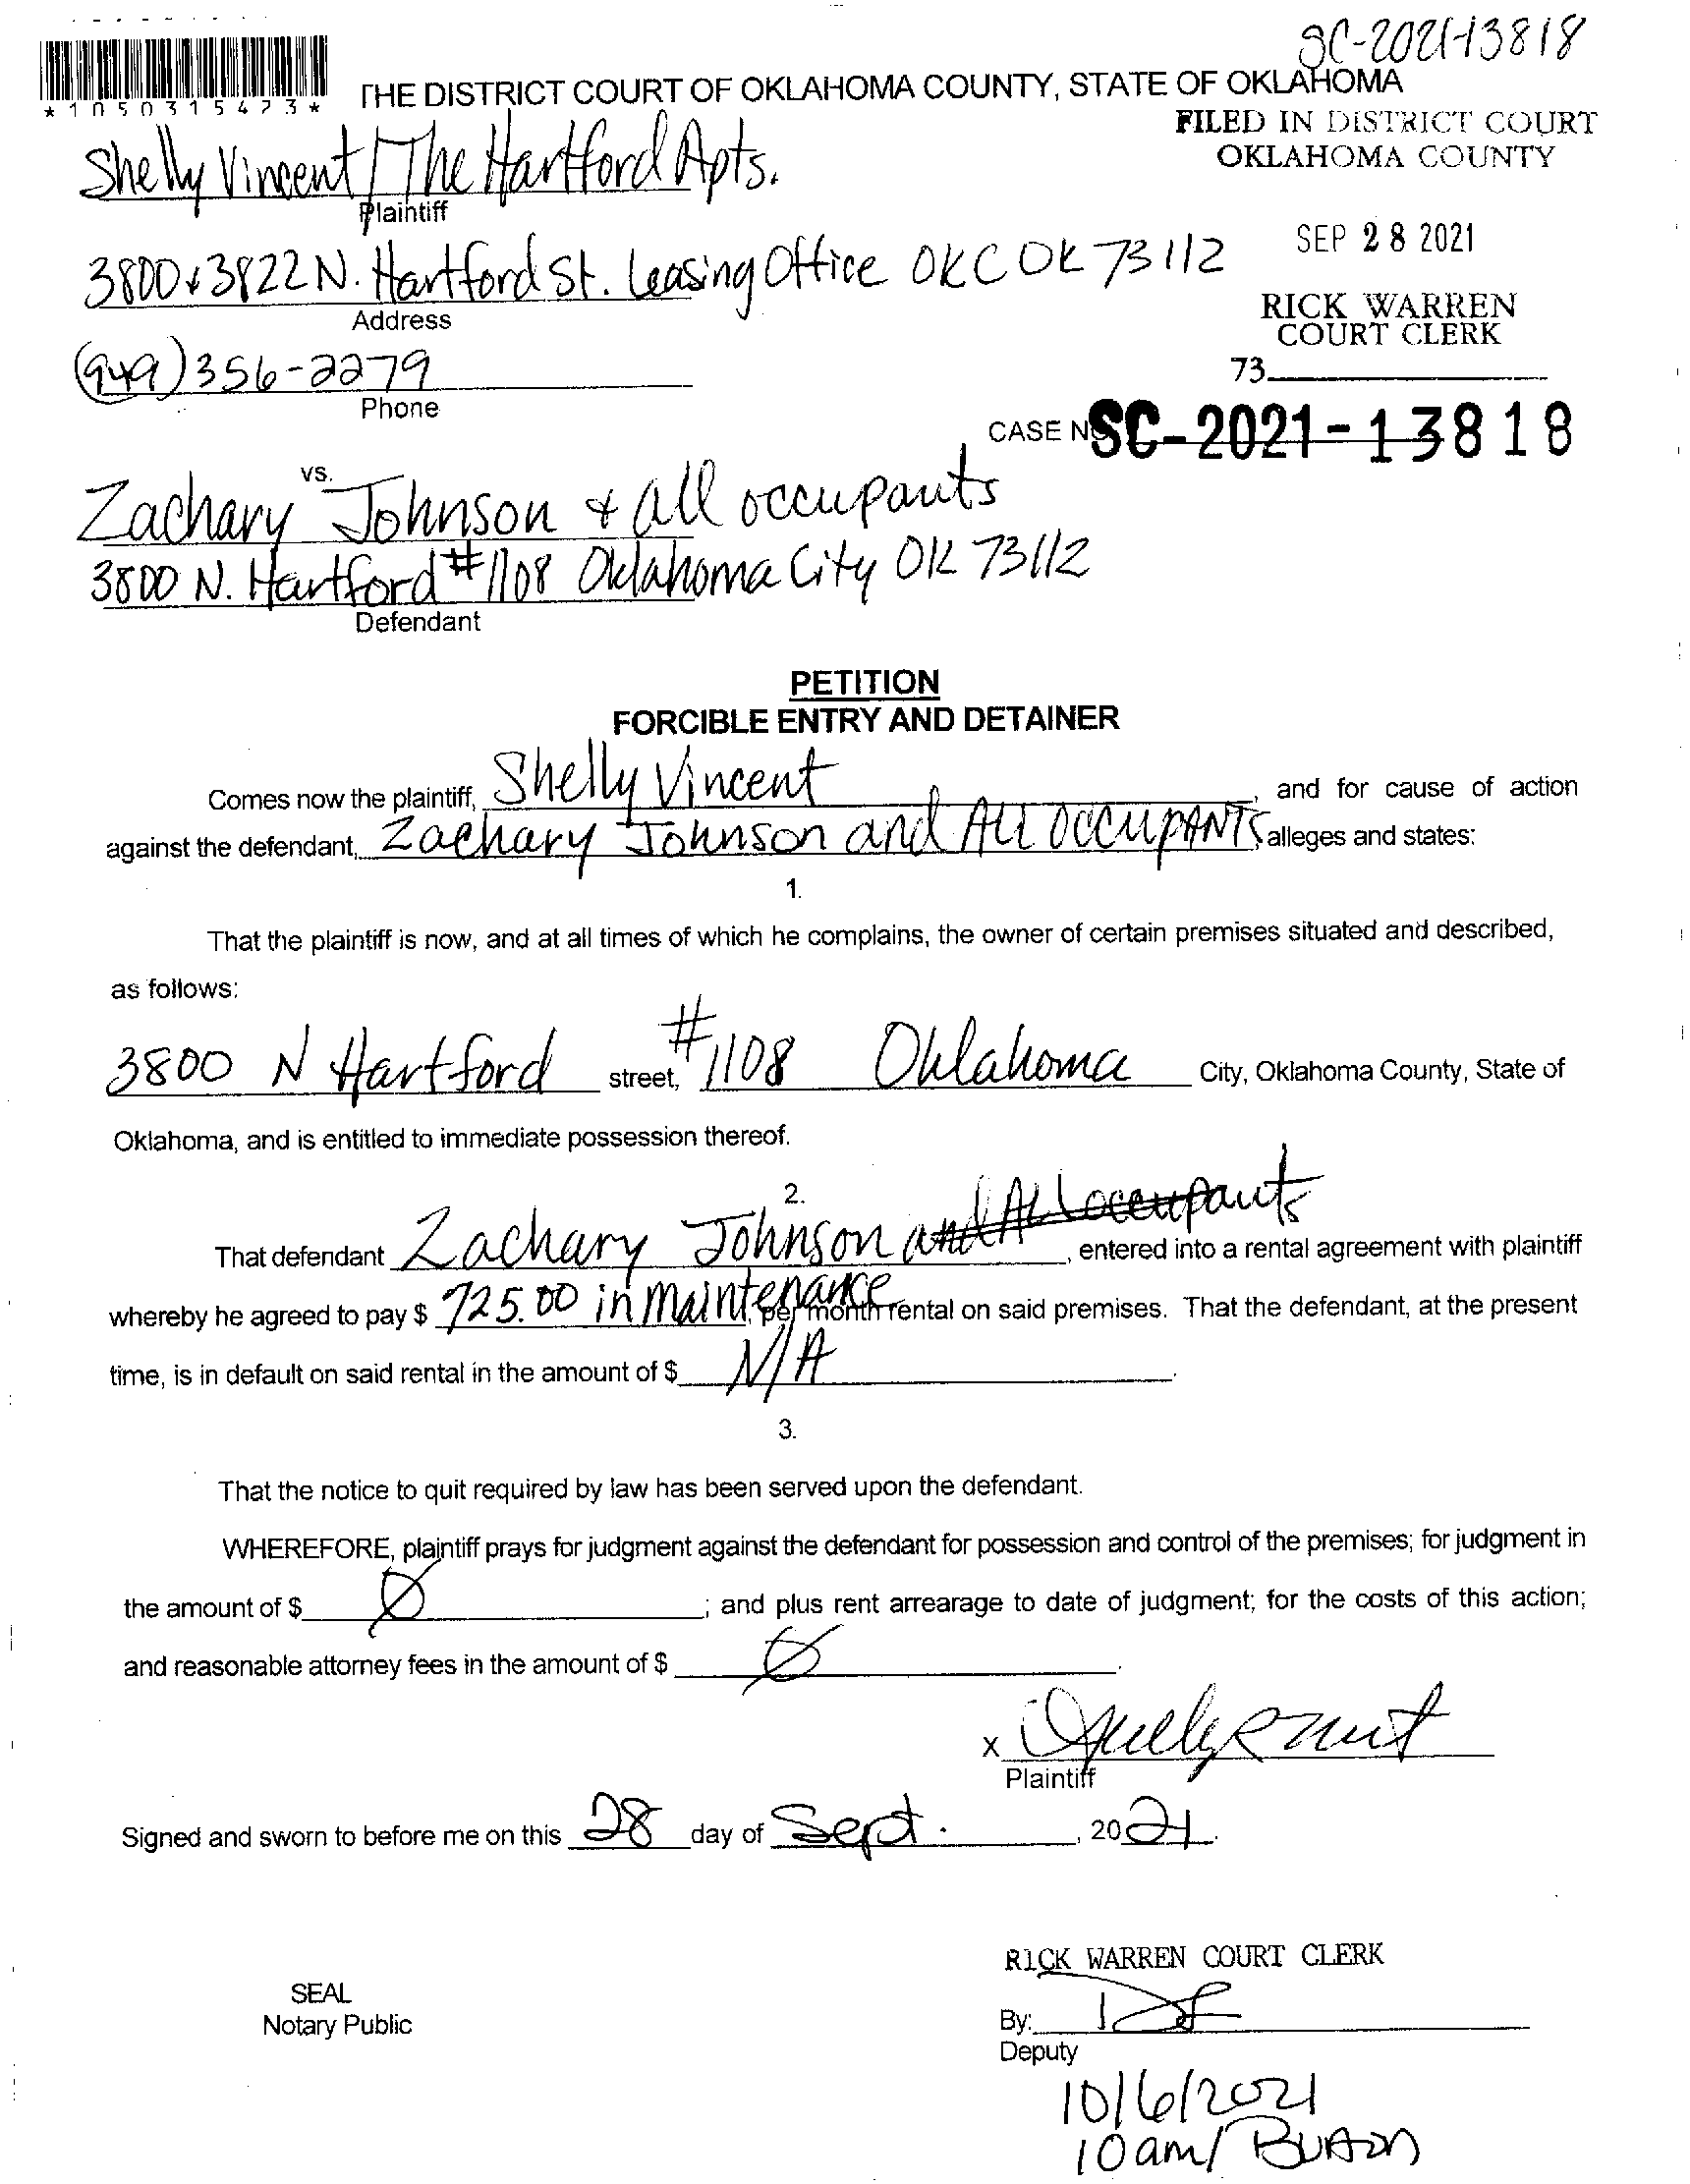 SC-2021-13818
*1050315473*
THE DISTRICT COURT OF OKLAHOMA COUNTY, STATE OF OKLAHOMA
FILED IN DISTRICT COURT
OKLAHOMA COUNTY
Shelly Vincent / The Hartford Apts.
Plaintiff
SEP 28 2021
3800 & 3822 N. Hartford St. Leasing Office OKC OK 73112
Address
RICK WARREN
COURT CLERK
(949) 356-2279
73
Phone
CASE NO SC-2021-13818
vs.
Zachary Johnson & all occupants
3800 N. Hartford #1108 Oklahoma City OK 73112
Defendant
PETITION
FORCIBLE ENTRY AND DETAINER
Comes now the plaintiff, Shelly Vincent, and for cause of action
against the defendant, Zachary Johnson and All OCCUPANTS alleges and states:
1.
That the plaintiff is now, and at all times of which he complains, the owner of certain premises situated and described,
as follows:
3800 N Hartford street, #1108 Oklahoma City, Oklahoma County, State of
Oklahoma, and is entitled to immediate possession thereof.
2.
That defendant Zachary Johnson and All occupants, entered into a rental agreement with plaintiff
whereby he agreed to pay $ 725.00 in maintenance, per month rental on said premises. That the defendant, at the present
time, is in default on said rental in the amount of $ N/A.
3.
That the notice to quit required by law has been served upon the defendant.
WHEREFORE, plaintiff prays for judgment against the defendant for possession and control of the premises; for judgment in
the amount of $ Ø; and plus rent arrearage to date of judgment; for the costs of this action;
and reasonable attorney fees in the amount of $ Ø.
x
Plaintiff
Signed and sworn to before me on this 28 day of Sept., 2021.
RICK WARREN COURT CLERK
SEAL
Notary Public
By:
Deputy
10/6/2021
10am/